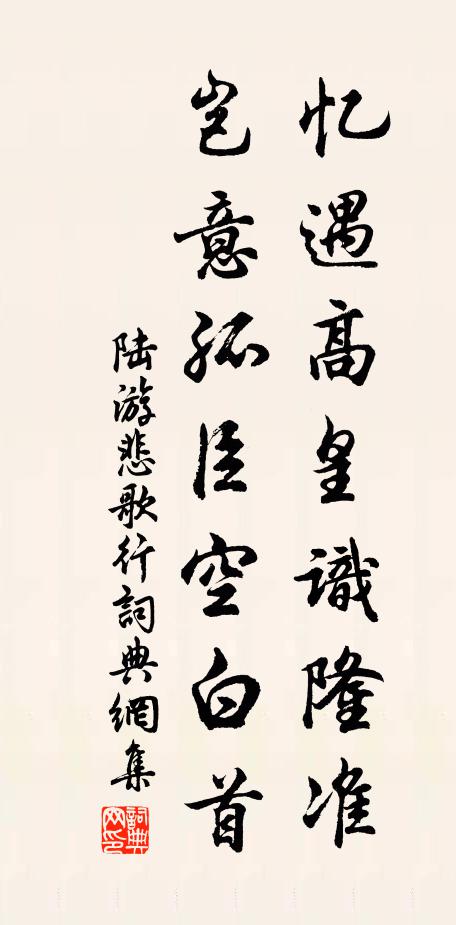 忆遇高皇識隆准
岂意孤臣空白首
陆游悲歌行詞典網集
詞典網印